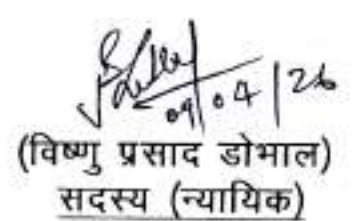 09/04/26
(विष्णु प्रसाद डोभाल)
सदस्य (न्यायिक)